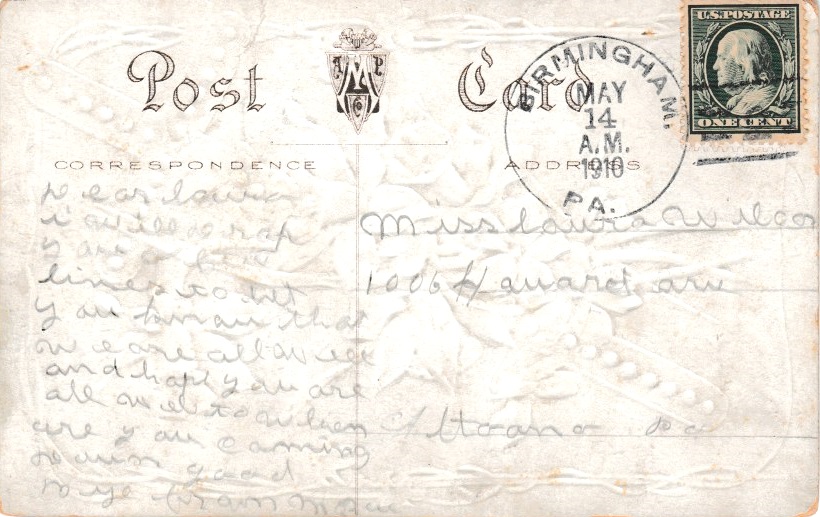 Post Card
U.S. POSTAGE
ONE CENT
BIRMINGHAM.
MAY
14
A.M.
1910
PA.
CORRESPONDENCE
ADDRESS
Dear laura
i will drop
you a few
lines to let
you know that
we are all well
and hope you are
all well to when
are you coming
down good
bye from
Miss laura Wilcox
1006 Howard ave
Altoona Pa